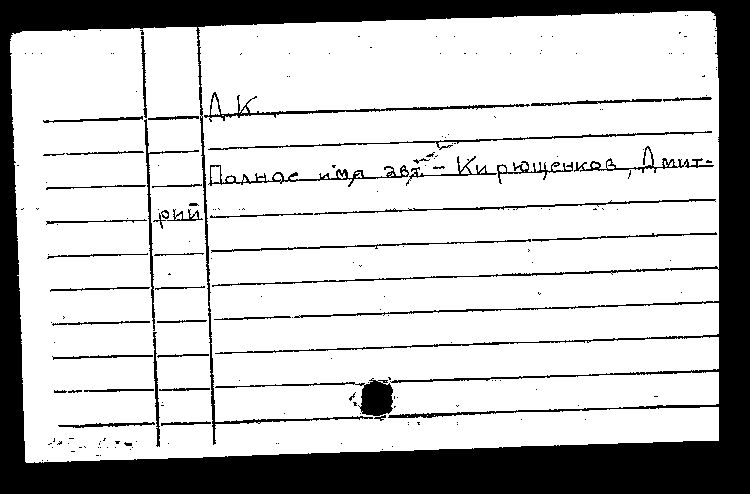 Д. К.
Полное имя авт. – Кирющенков, Дмит-
рий